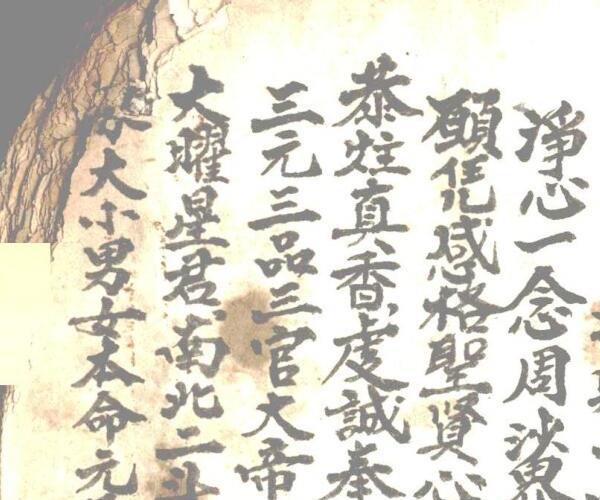 淨心一念周
願凭感格聖賢心
恭炷真香虔誠奉
三元三品三官大帝
大曜星君南北二斗
家大小男女本命元